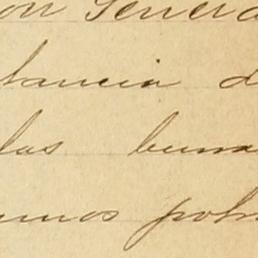 on Genera
tancia d
las buena
umos pobr